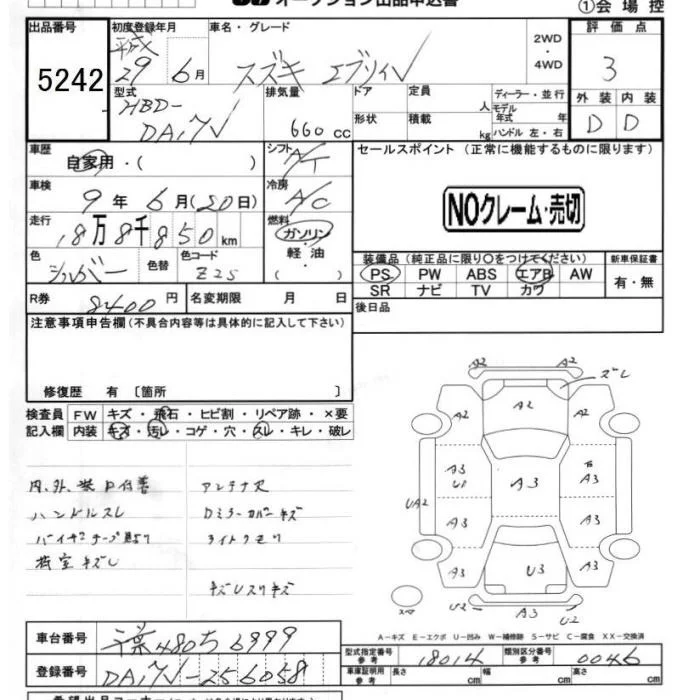 オークション出品申込書
①会場控
出品番号 初度登録年月 車名・グレード 2WD ・ 4WD 評価点
5242 平成 29年 6月 スズキ エブリィV 3
型式 排気量 ドア 定員 人 ディーラー・並行 外装 内装
HBD-DA17V 660cc 形状 積載 kg モデル年式 年 ハンドル 左・右 D D
車歴 自家用・( ) シフト A/T セールスポイント (正常に機能するものに限ります)
車検 9年 6月(20日) 冷房 A/C
NOクレーム・売切
走行 18万8千850km 燃料 ガソリン・軽油・( )
色 シルバー 色替 色コード Z2S
装備品(純正品に限り○をつけてください) 新車保証書
PS PW ABS エアB AW 有・無
SR ナビ TV カワ
R券 8400円 名変期限 月 日 後日品
注意事項申告欄(不具合内容等は具体的に記入して下さい)
修復歴 有 〔箇所 〕
検査員 FW キズ・飛石・ヒビ割・リペア跡・×要
記入欄 内装 キズ・汚レ・コゲ・穴・スレ・キレ・破レ
アンテナ欠
ハンドルスレ Dミラーカバーキズ
ライトクモリ
荷室キズU
A2 A2 ズレ
A2 A2 A2
A3 U1 A3 A3
UA2
A3 A3
A3 U3 A3
U2 A3 U2
A-キズ E-エクボ U-凹み W-補修跡 S-サビ C-腐食 XX-交換済
車台番号 千葉 480 ち 6999
登録番号 DA17V-256058
型式指定番号 参考 18014 類別区分番号 参考 0046
車庫証明用 参考 長さ cm 幅 cm 高さ cm